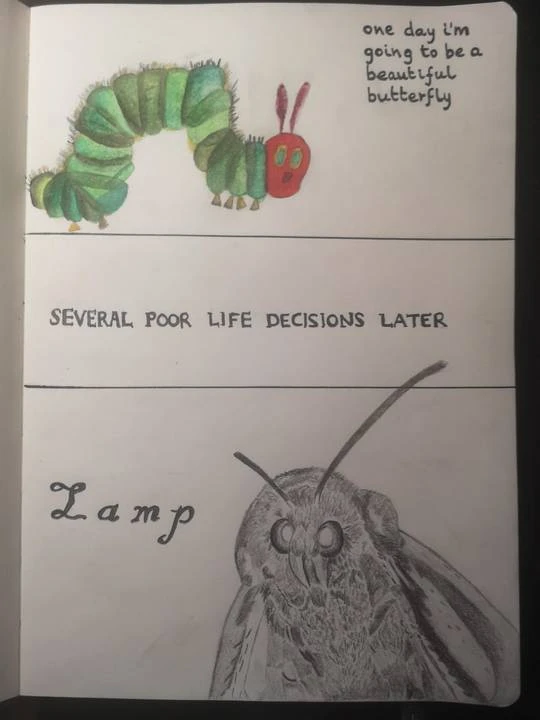 one day i'm
going to be a
beautiful
butterfly
SEVERAL POOR LIFE DECISIONS LATER
Lamp